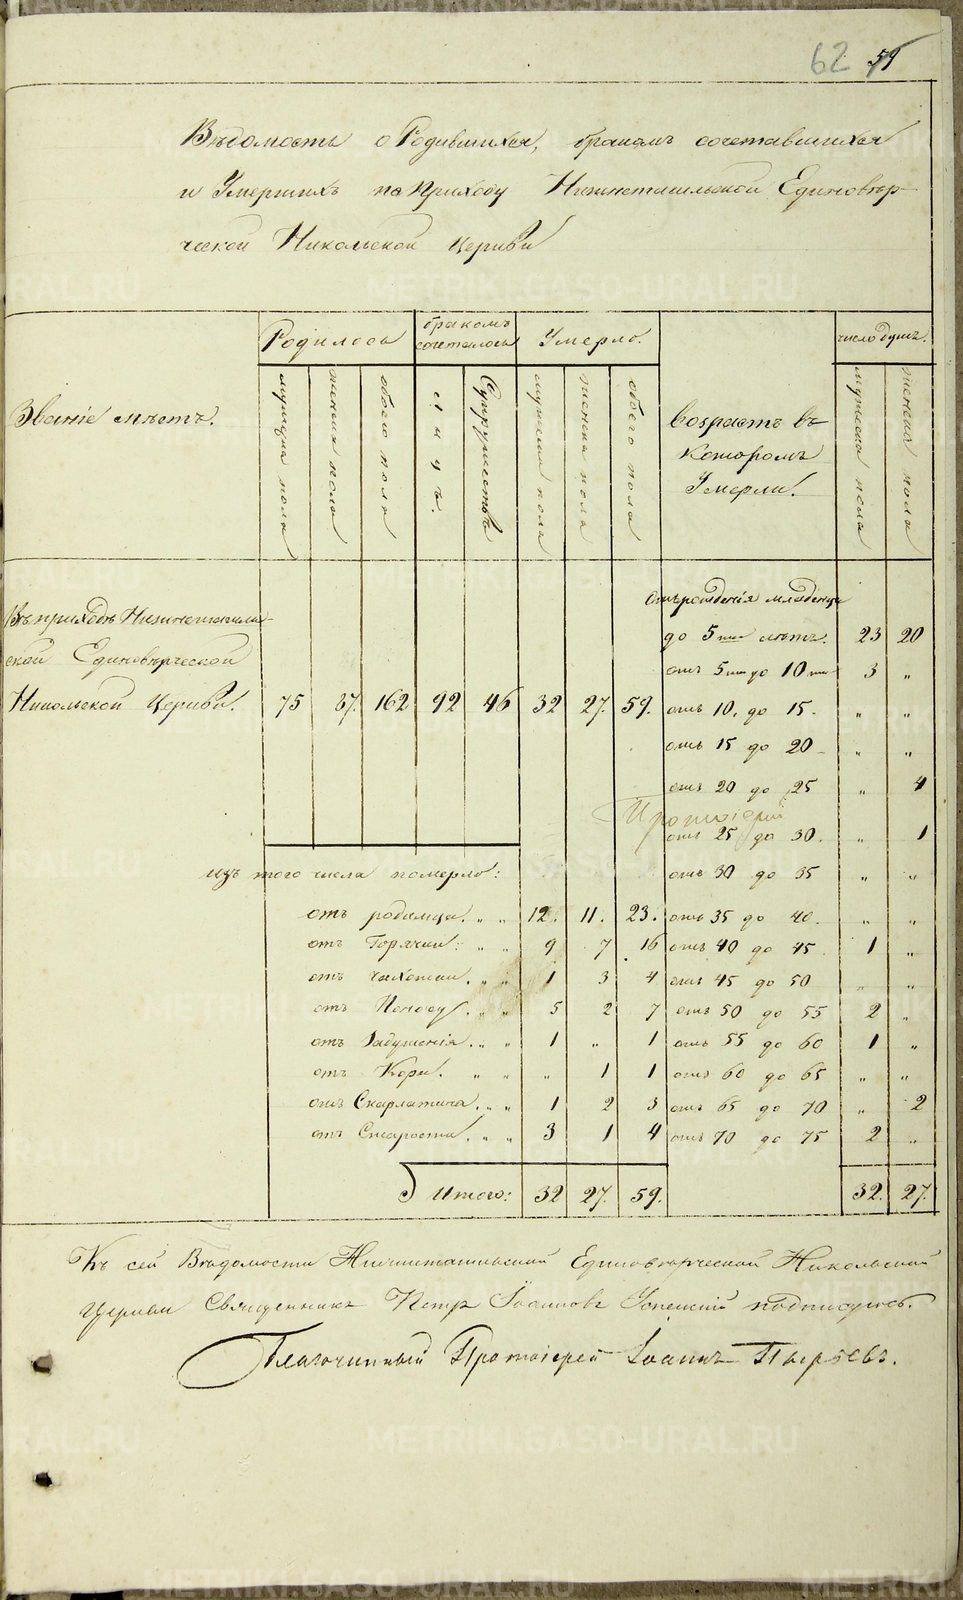 62 59
Вѣдомость о Родившихся, бракомъ сочетавшихся
и Умершихъ по Приходу Нижнетагильской Единовѣр-
ческой Никольской Церкви
Родилось бракомъ сочеталось Умерло. число душъ.
Званіе мѣстъ. мужска пола женска пола обоего пола лицъ. Супружествъ мужска пола женска пола обоего пола Возрастъ въ которомъ Умерли. мужска пола женска пола
Въ приходѣ Нижнетагиль-
ской Единовѣрческой
Никольской Церкви. 75 87. 162 92 46 32 27. 59.
отъ рожденія младенца
до 5ти лѣтъ. 23 20
отъ 5ти до 10ти 3 „
отъ 10. до 15. „ „
отъ 15 до 20 „ „
отъ 20 до 25 „ 4
Протоіерей
отъ 25 до 30. „ 1
отъ 30 до 35 „ „
изъ того числа померло:
отъ родимца. „ „ 12. 11. 23. отъ 35 до 40. „ „
отъ Горячки: „ „ 9 7 16 отъ 40 до 45 1 „
отъ чахотки. „ „ 1 3 4 отъ 45 до 50 „ „
отъ Поносу. „ „ 5 2 7 отъ 50 до 55 2 „
отъ Задушенія. „ „ 1 „ 1 отъ 55 до 60 1 „
отъ Кори. „ „ „ 1 1 отъ 60 до 65 „ „
отъ Скарлатина. „ „ 1 2 3 отъ 65 до 70 „ 2
отъ Старости. „ „ 3 1 4 отъ 70 до 75 2 „
Итого: 32 27. 59. 32. 27.
Къ сей Вѣдомости Нижнетагильской Единовѣрческой Никольской
Церкви Священникъ Петръ Іоанновъ подписуюсь.
Благочинный Протоіерей Іоаннъ Пырьевъ.
METRIKI.GASO-URAL.RU